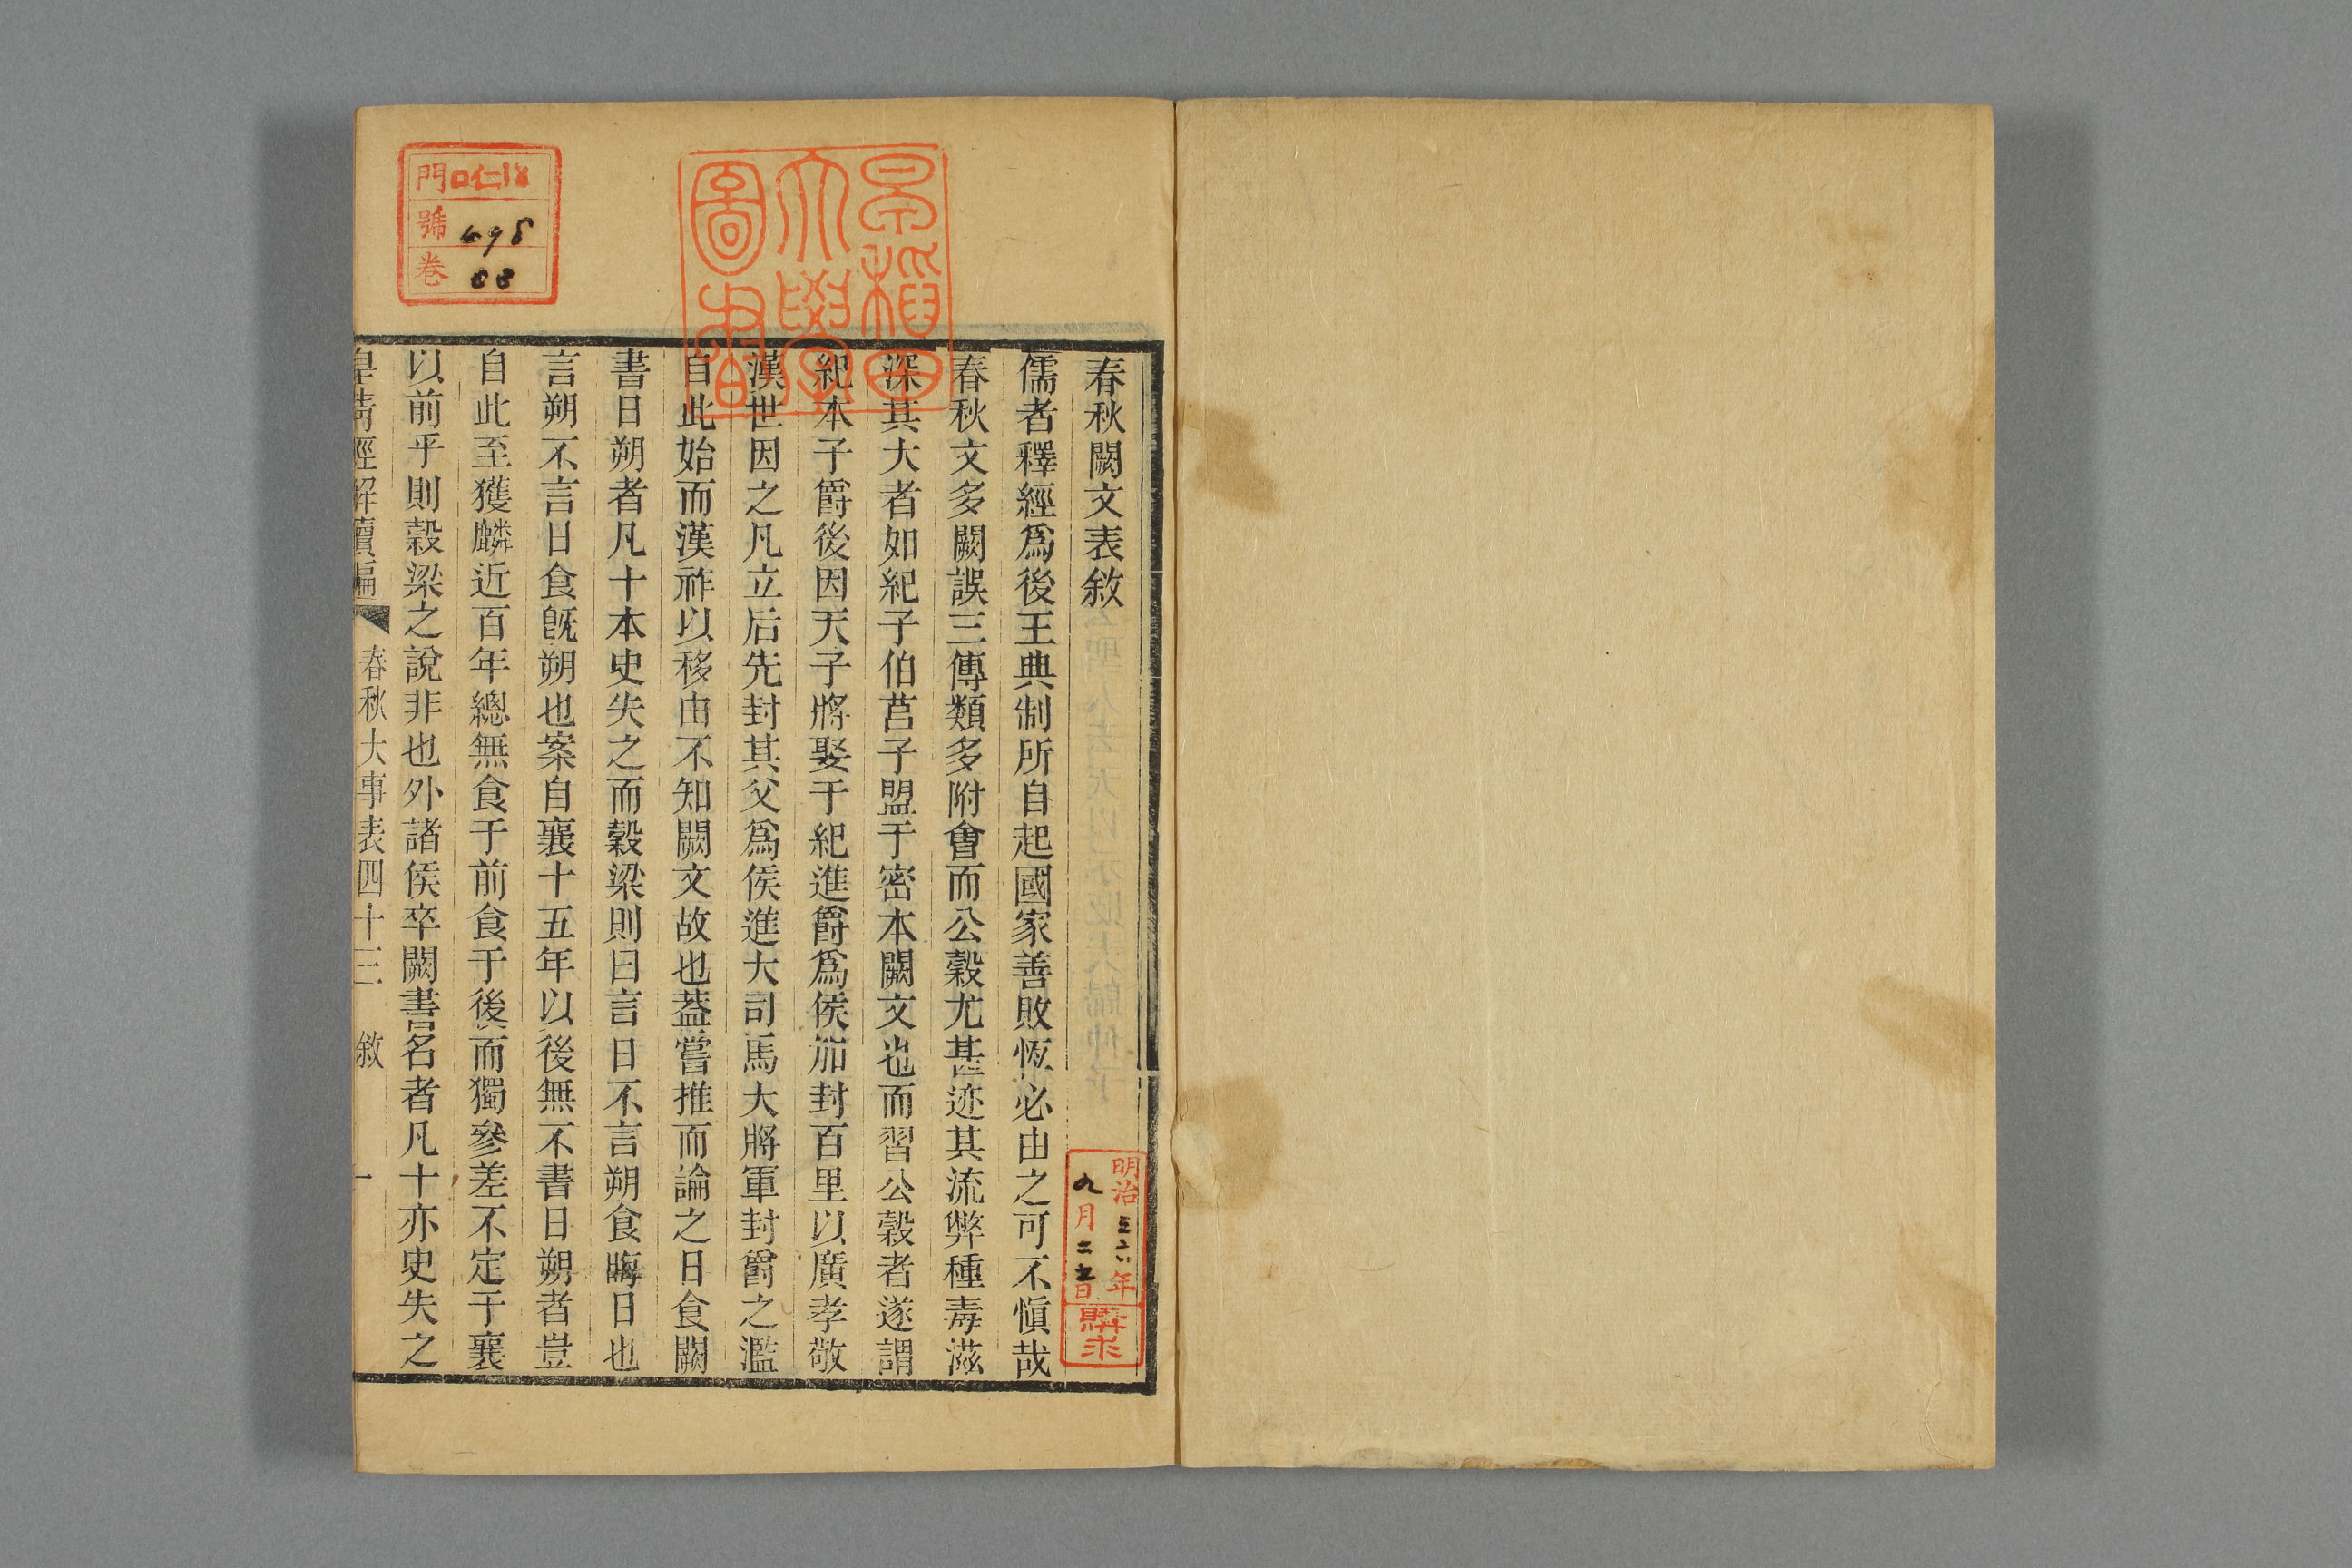 春秋闕文表敘
儒者釋經爲後王典制所自起國家善敗恆必由之可不愼哉
春秋文多闕誤三傳類多附會而公穀尤甚迹其流弊種毒滋
深其大者如紀子伯莒子盟于密本闕文也而習公穀者遂謂
紀本子爵後因天子將娶于紀進爵爲侯加封百里以廣孝敬
漢世因之凡立后先封其父爲侯進大司馬大將軍封爵之濫
自此始而漢祚以移由不知闕文故也葢嘗推而論之日食闕
書日朔者凡十本史失之而穀梁則曰言日不言朔食晦日也
言朔不言日食旣朔也案自襄十五年以後無不書日朔者豈
自此至獲麟近百年總無食于前食于後而獨參差不定于襄
以前乎則穀梁之說非也外諸侯卒闕書名者凡十亦史失之
皇淸經解續編
春秋大事表四十三 敘
一
早稻田
大學
圖書
門 口仁
號 498
卷 88
明治三六年
九月二 日
購求